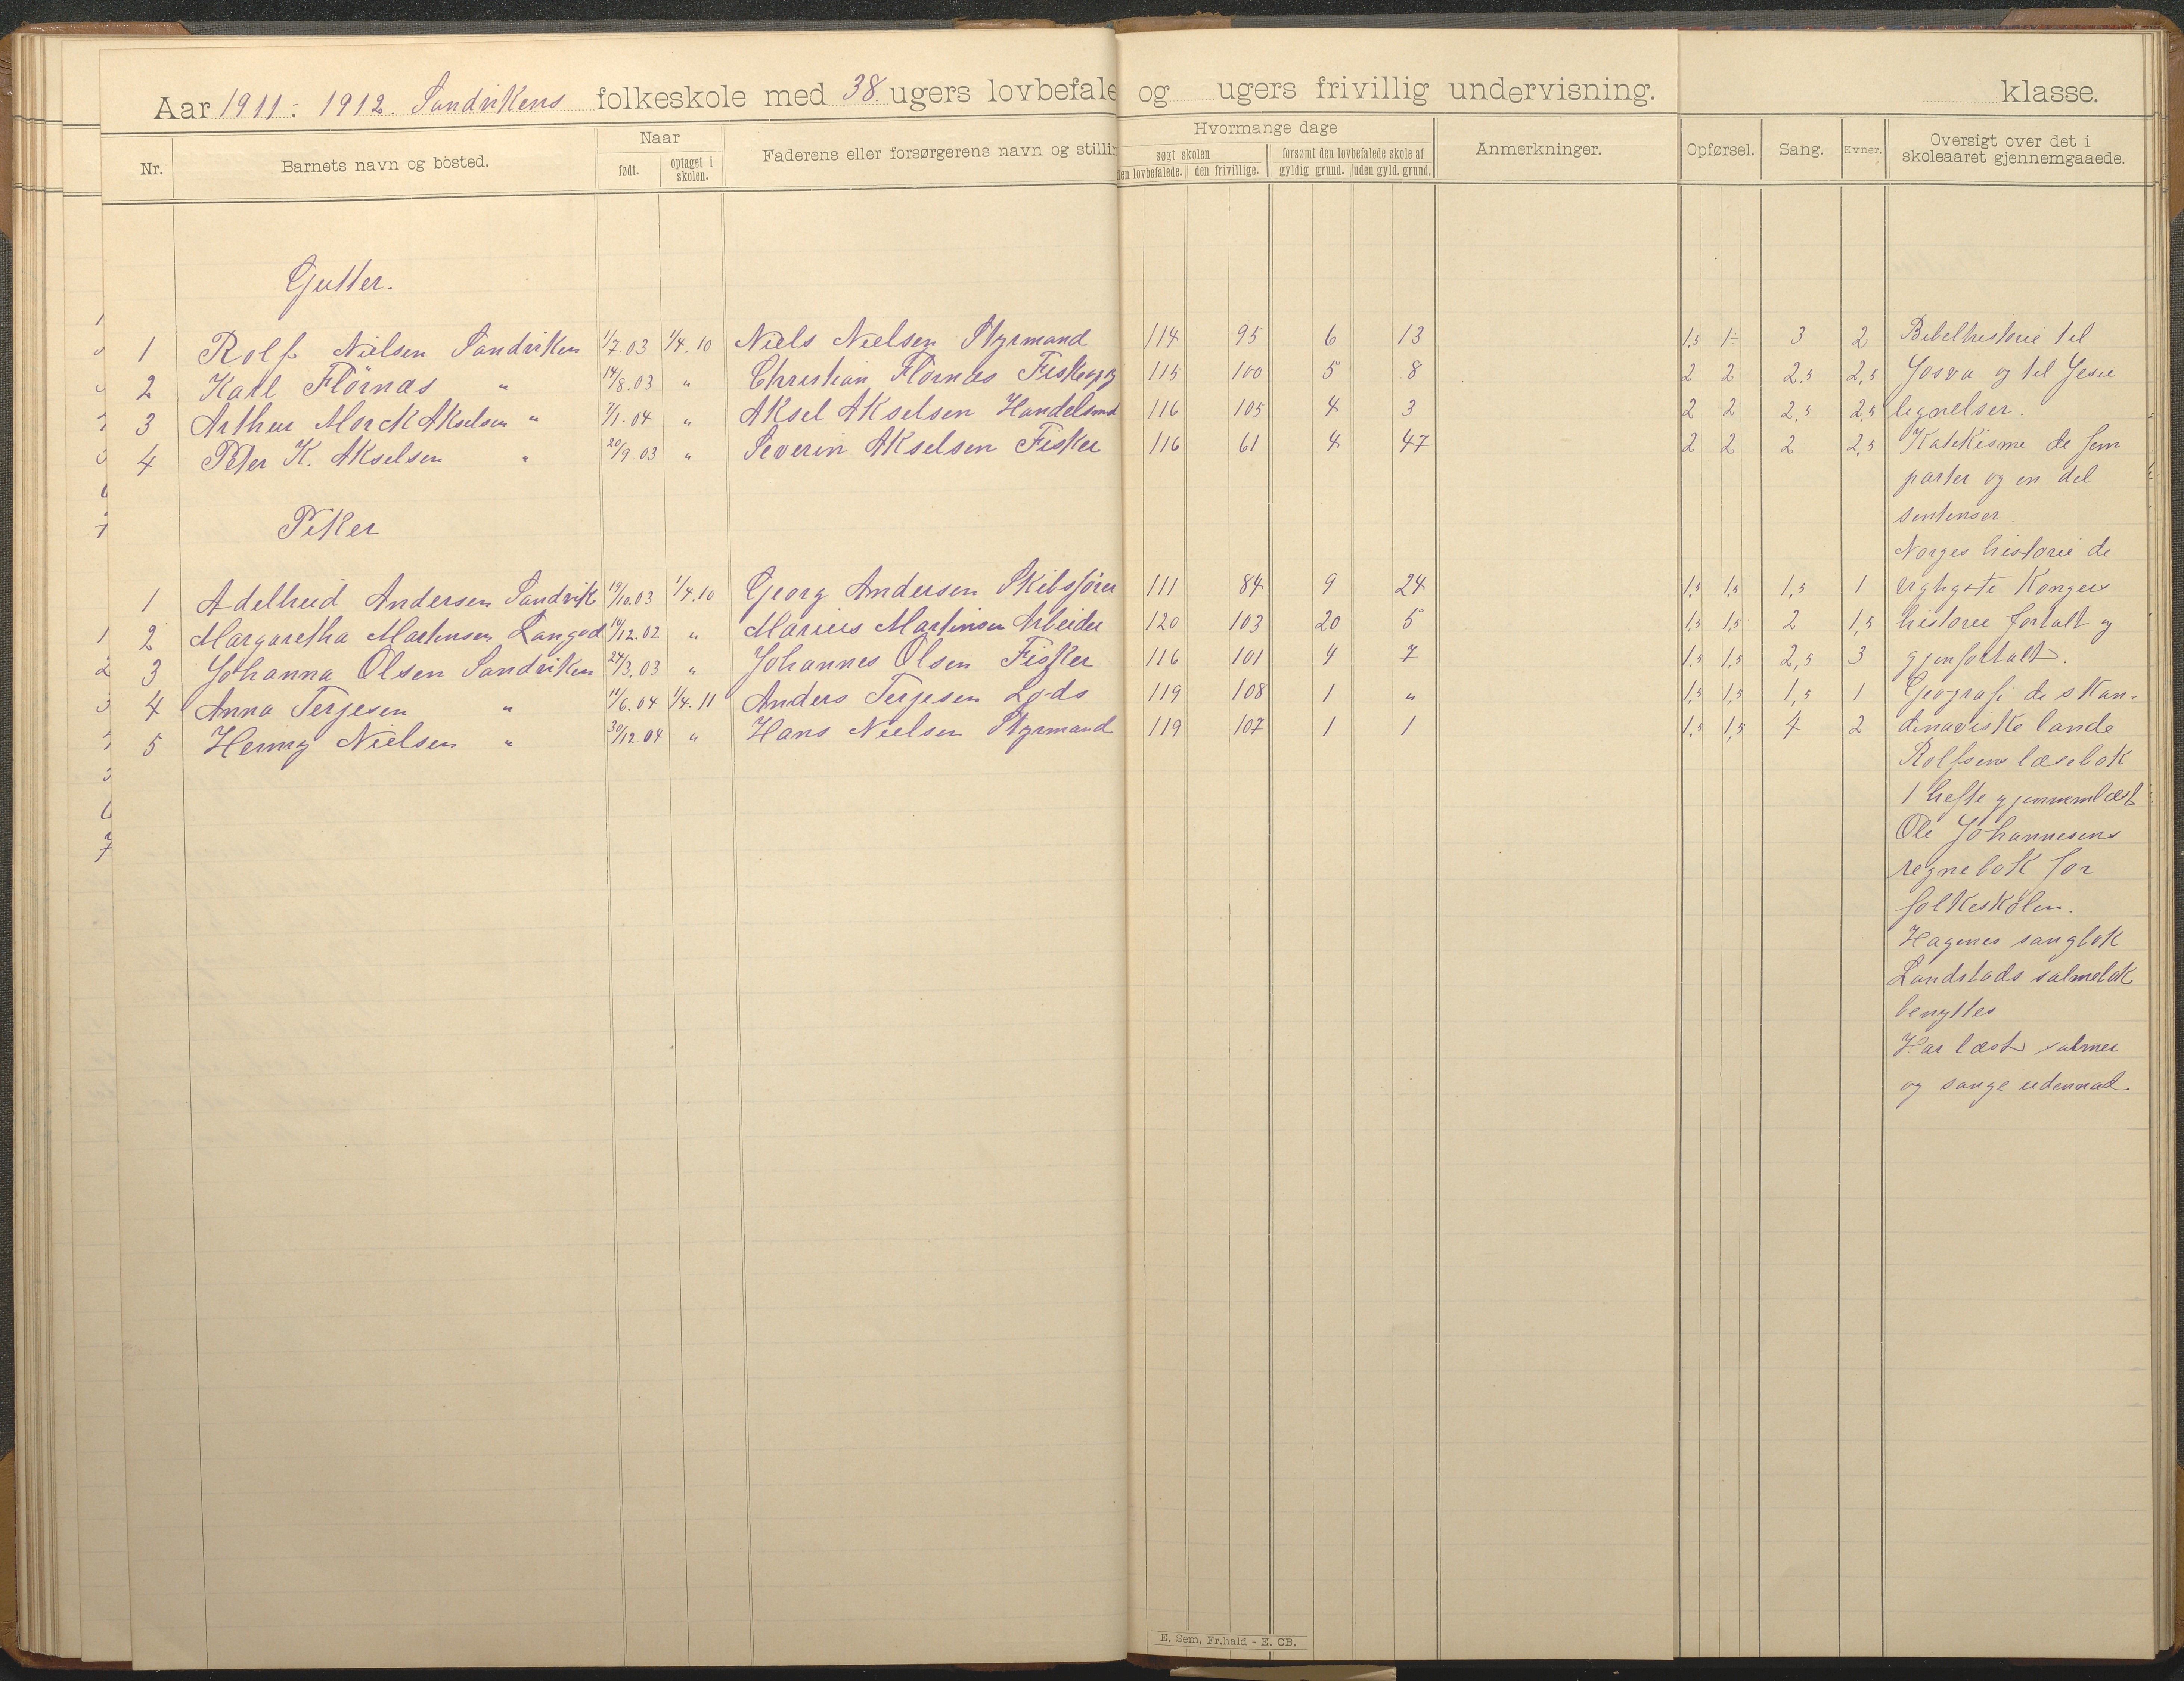 Aar 1911-1912. Sandvikens folkeskole med 38 ugers lovbefale og ugers frivillig undervisning. klasse.
Nr. Barnets navn og bosted. Naar født. optaget i skolen. Faderens eller forsørgerens navn og stillin Hvormange dage søgt skolen den lovbefalede. den frivillige. forsømt den lovbefalede skole af gyldig grund. uden gyld. grund. Anmerkninger. Opførsel. Sang. Evner. Oversigt over det i skoleaaret gjennemgaaede.
Gutter.
1 Rolf Nielsen Sandviken 1/7.03 1/4.10 Niels Nielsen Styrmand 114 95 6 13 1,5 1÷ 3 2 Bibelhistorie til
2 Karl Flörnæs " 14/8.03 " Christian Flörnæs 115 100 5 8 2 2 2,5 2,5 Josva og til Jesu
3 Arthur Morck Akselsen " 7/1.04 " Aksel Akselsen Handelsmd 116 105 4 3 2 2 2,5 2,5 lignelser.
4 Peter K. Akselsen " 20/9.03 " Severin Akselsen Fisker 116 61 4 47 2 2 2 2,5 Katekisme de fem
parter og en del
sentenser.
Piker
Norges historie de
1 Adelheid Andersen Sandvik 19/10.03 1/4.10 Georg Andersen Skibsfører 111 84 9 24 1,5 1,5 1,5 1 vigtigste Konges
2 Margaretha Martinsen Langød 14/12.02 " Marius Martinsen Arbeider 120 103 20 5 1,5 1,5 2 1,5 historie fortalt og
3 Johanna Olsen Sandviken 24/3.03 " Johannes Olsen Fisker 116 101 4 7 1,5 1,5 2,5 3 gjenfortalt.
4 Anna Terjesen " 11/6.04 1/4.11 Anders Terjesen Lods 119 108 1 " 1,5 1,5 1,5 1 Geografi de skan-
5 Henny Nielsen " 30/12.04 " Hans Nielsen Styrmand 119 107 1 1 1,5 1,5 4 2 dinaviske lande
Rolfsens læsebok
1 hefte gjennemlæst
Ole Johannesens
regnebok for
folkeskolen.
Hagenes sangbok
Landstads salmebok
benyttes
Har læst salmer
og sange udennad
E. Sem, Fr.hald - E. CB.